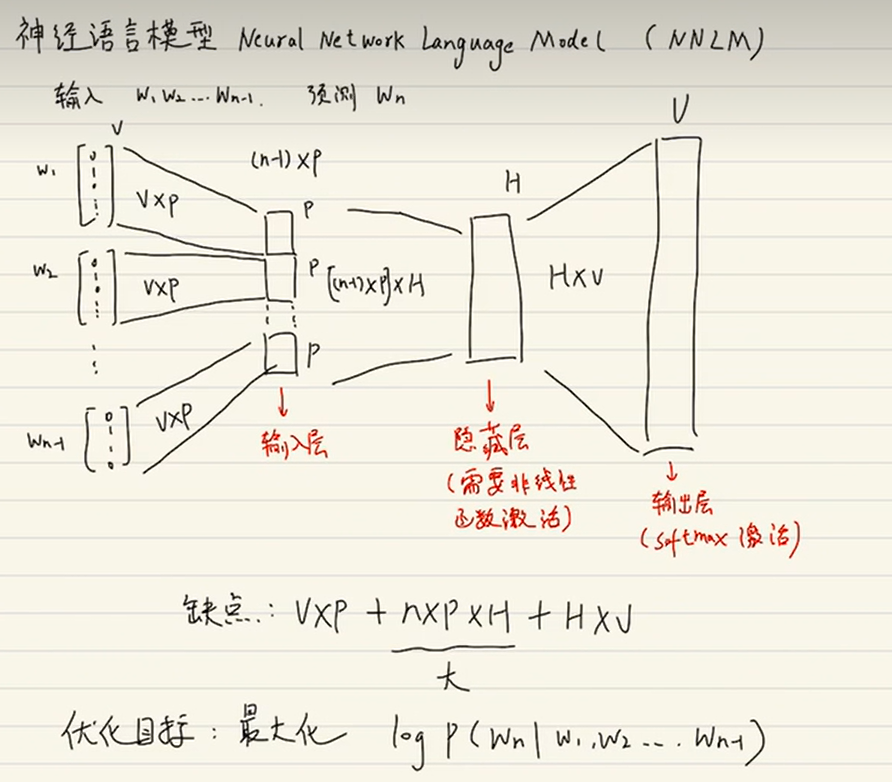 神经语言模型 Neural Network Language Model (NNLM)
输入 W₁W₂...Wn-1. 预测 Wn
V
V
(n-1)×P
W₁
V×P
P
H
W₂
V×P
P
[(n-1)×P]×H
H×V
⋮
P
Wn-1
V×P
输入层
隐藏层
(需要非线性
函数激活)
输出层
(softmax 激活)
缺点: V×P + n×P×H + H×V
大
优化目标: 最大化 log P(Wn| W₁,W₂.... Wn-1)